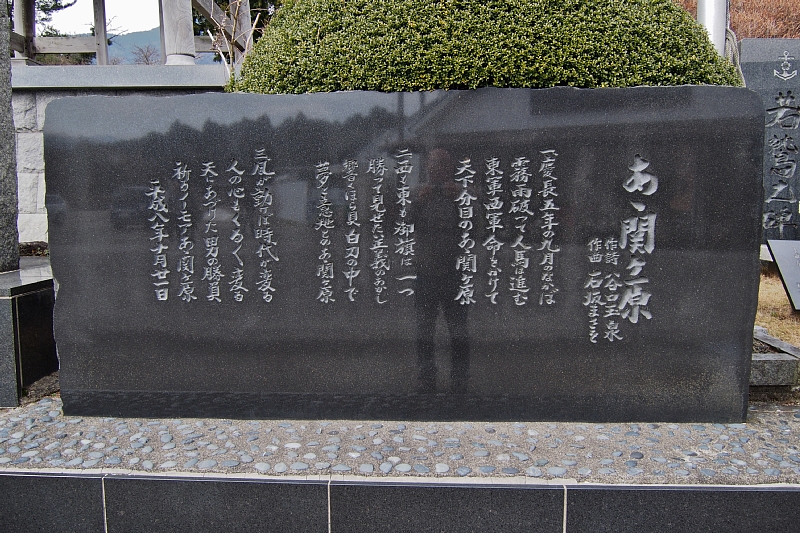 あゝ関ヶ原
作詩 谷口玉泉
作曲 石坂まさを
一、慶長五年の九月のなかば
霧雨破って人馬は進む
東軍西軍命をかけて
天下分目のあゝ関ヶ原
二、西も東も御旗は一つ
勝って見せたい正義のあかし
響くほら貝白刃の中で
夢と意地とのあゝ関ヶ原
三、風が動けば時代が変る
人の心もくるくる変る
天にあづけた男の勝負
祈りノーモアあゝ関ヶ原
平成八年十月廿一日
若鷲之碑